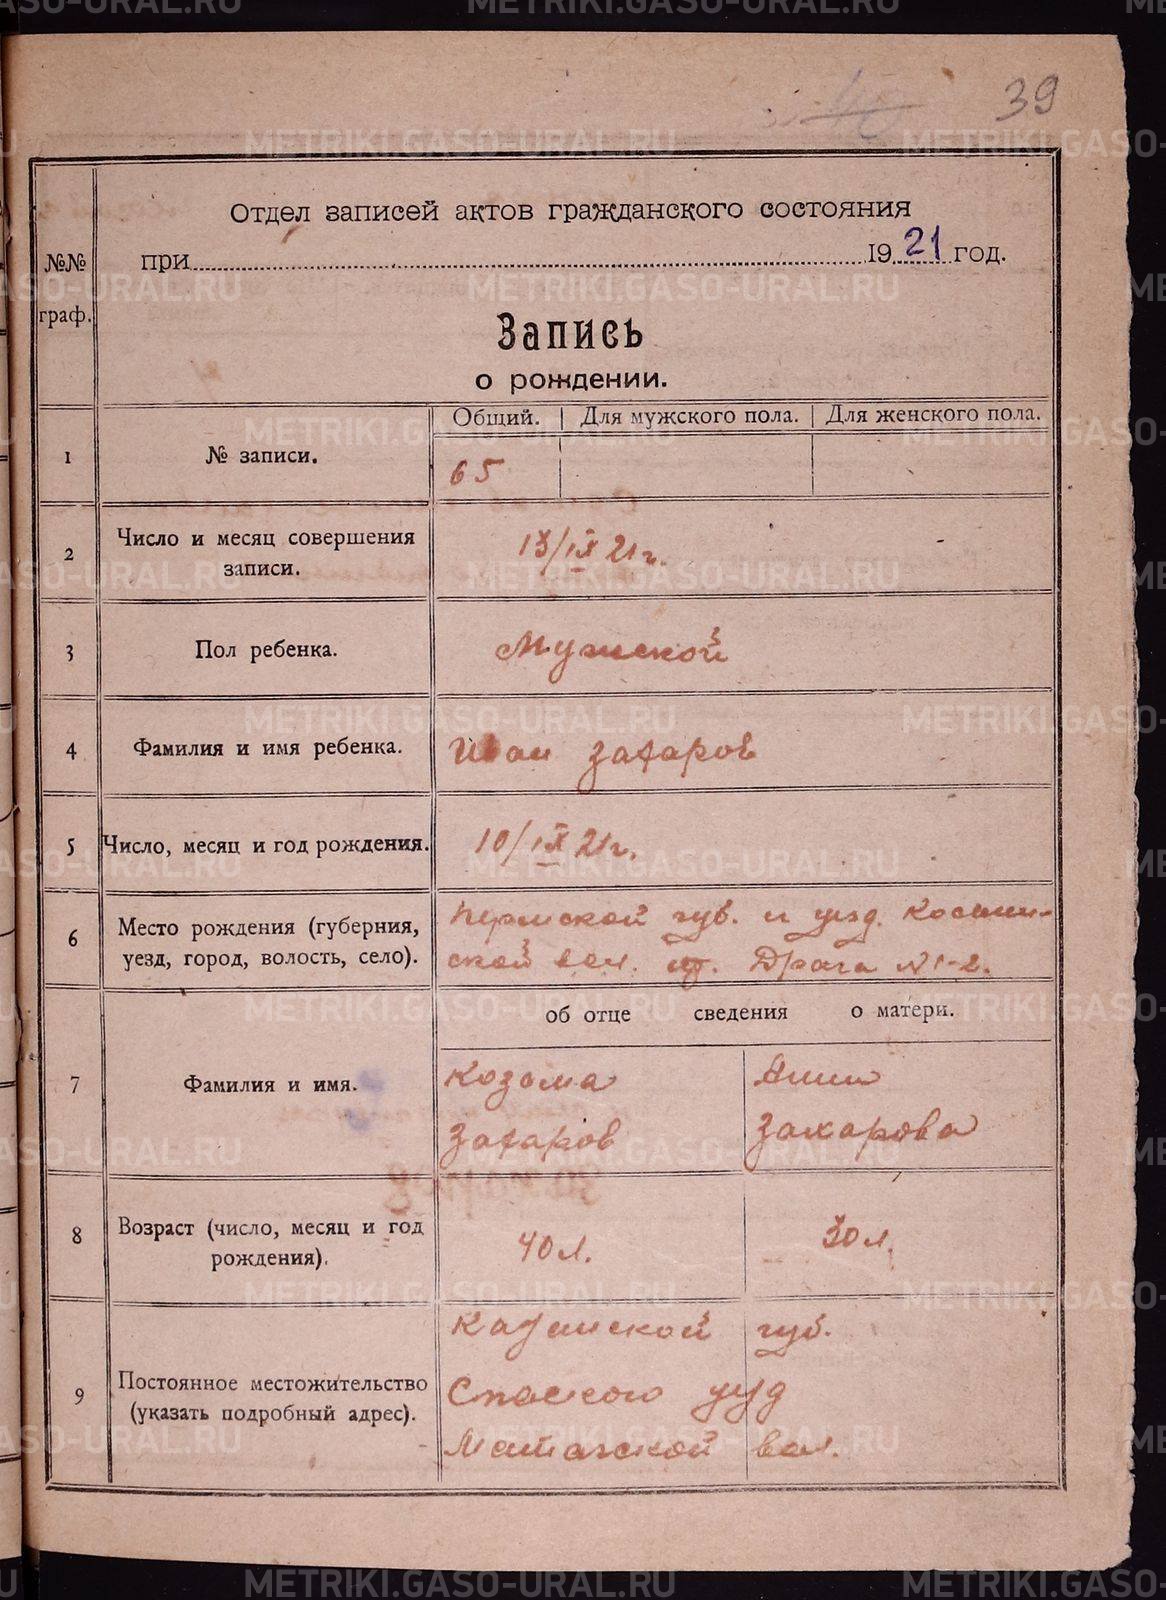 39
Отдел записей актов гражданского состояния
при 1921 год.
№№ граф.
Запись
о рождении.
Общий. Для мужского пола. Для женского пола.
1 № записи. 65
2 Число и месяц совершения записи. 13/IX 21 г.
3 Пол ребенка. Мужской
4 Фамилия и имя ребенка. Иван Захаров
5 Число, месяц и год рождения. 10/IX 21 г.
6 Место рождения (губерния, уезд, город, волость, село). Пермской губ. и уезд.
вол. Драга №1-2.
об отце сведения о матери.
7 Фамилия и имя. Козьма Захаров
Анна Захарова
8 Возраст (число, месяц и год рождения). 40 л. 30 л.
9 Постоянное местожительство (указать подробный адрес). Казанской губ.
Спаского уезд
вол.
METRIKI.GASO-URAL.RU